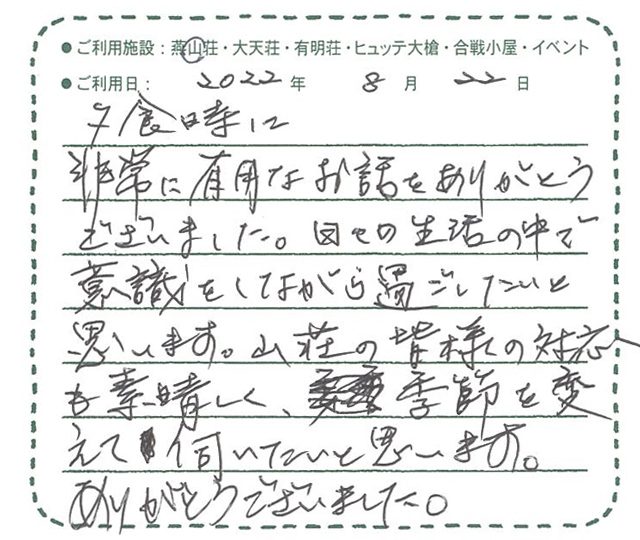 ●ご利用施設：燕山荘・大天荘・有明荘・ヒュッテ大槍・合戦小屋・イベント
●ご利用日： 2022 年 8 月 22 日
夕食時に
非常に有用なお話をありがとう
ございました。日々の生活の中で
意識をしながら過ごしたいと
思います。山荘の皆様の対応
も素晴しく、季節を変
えて伺いたいと思います。
ありがとうございました。